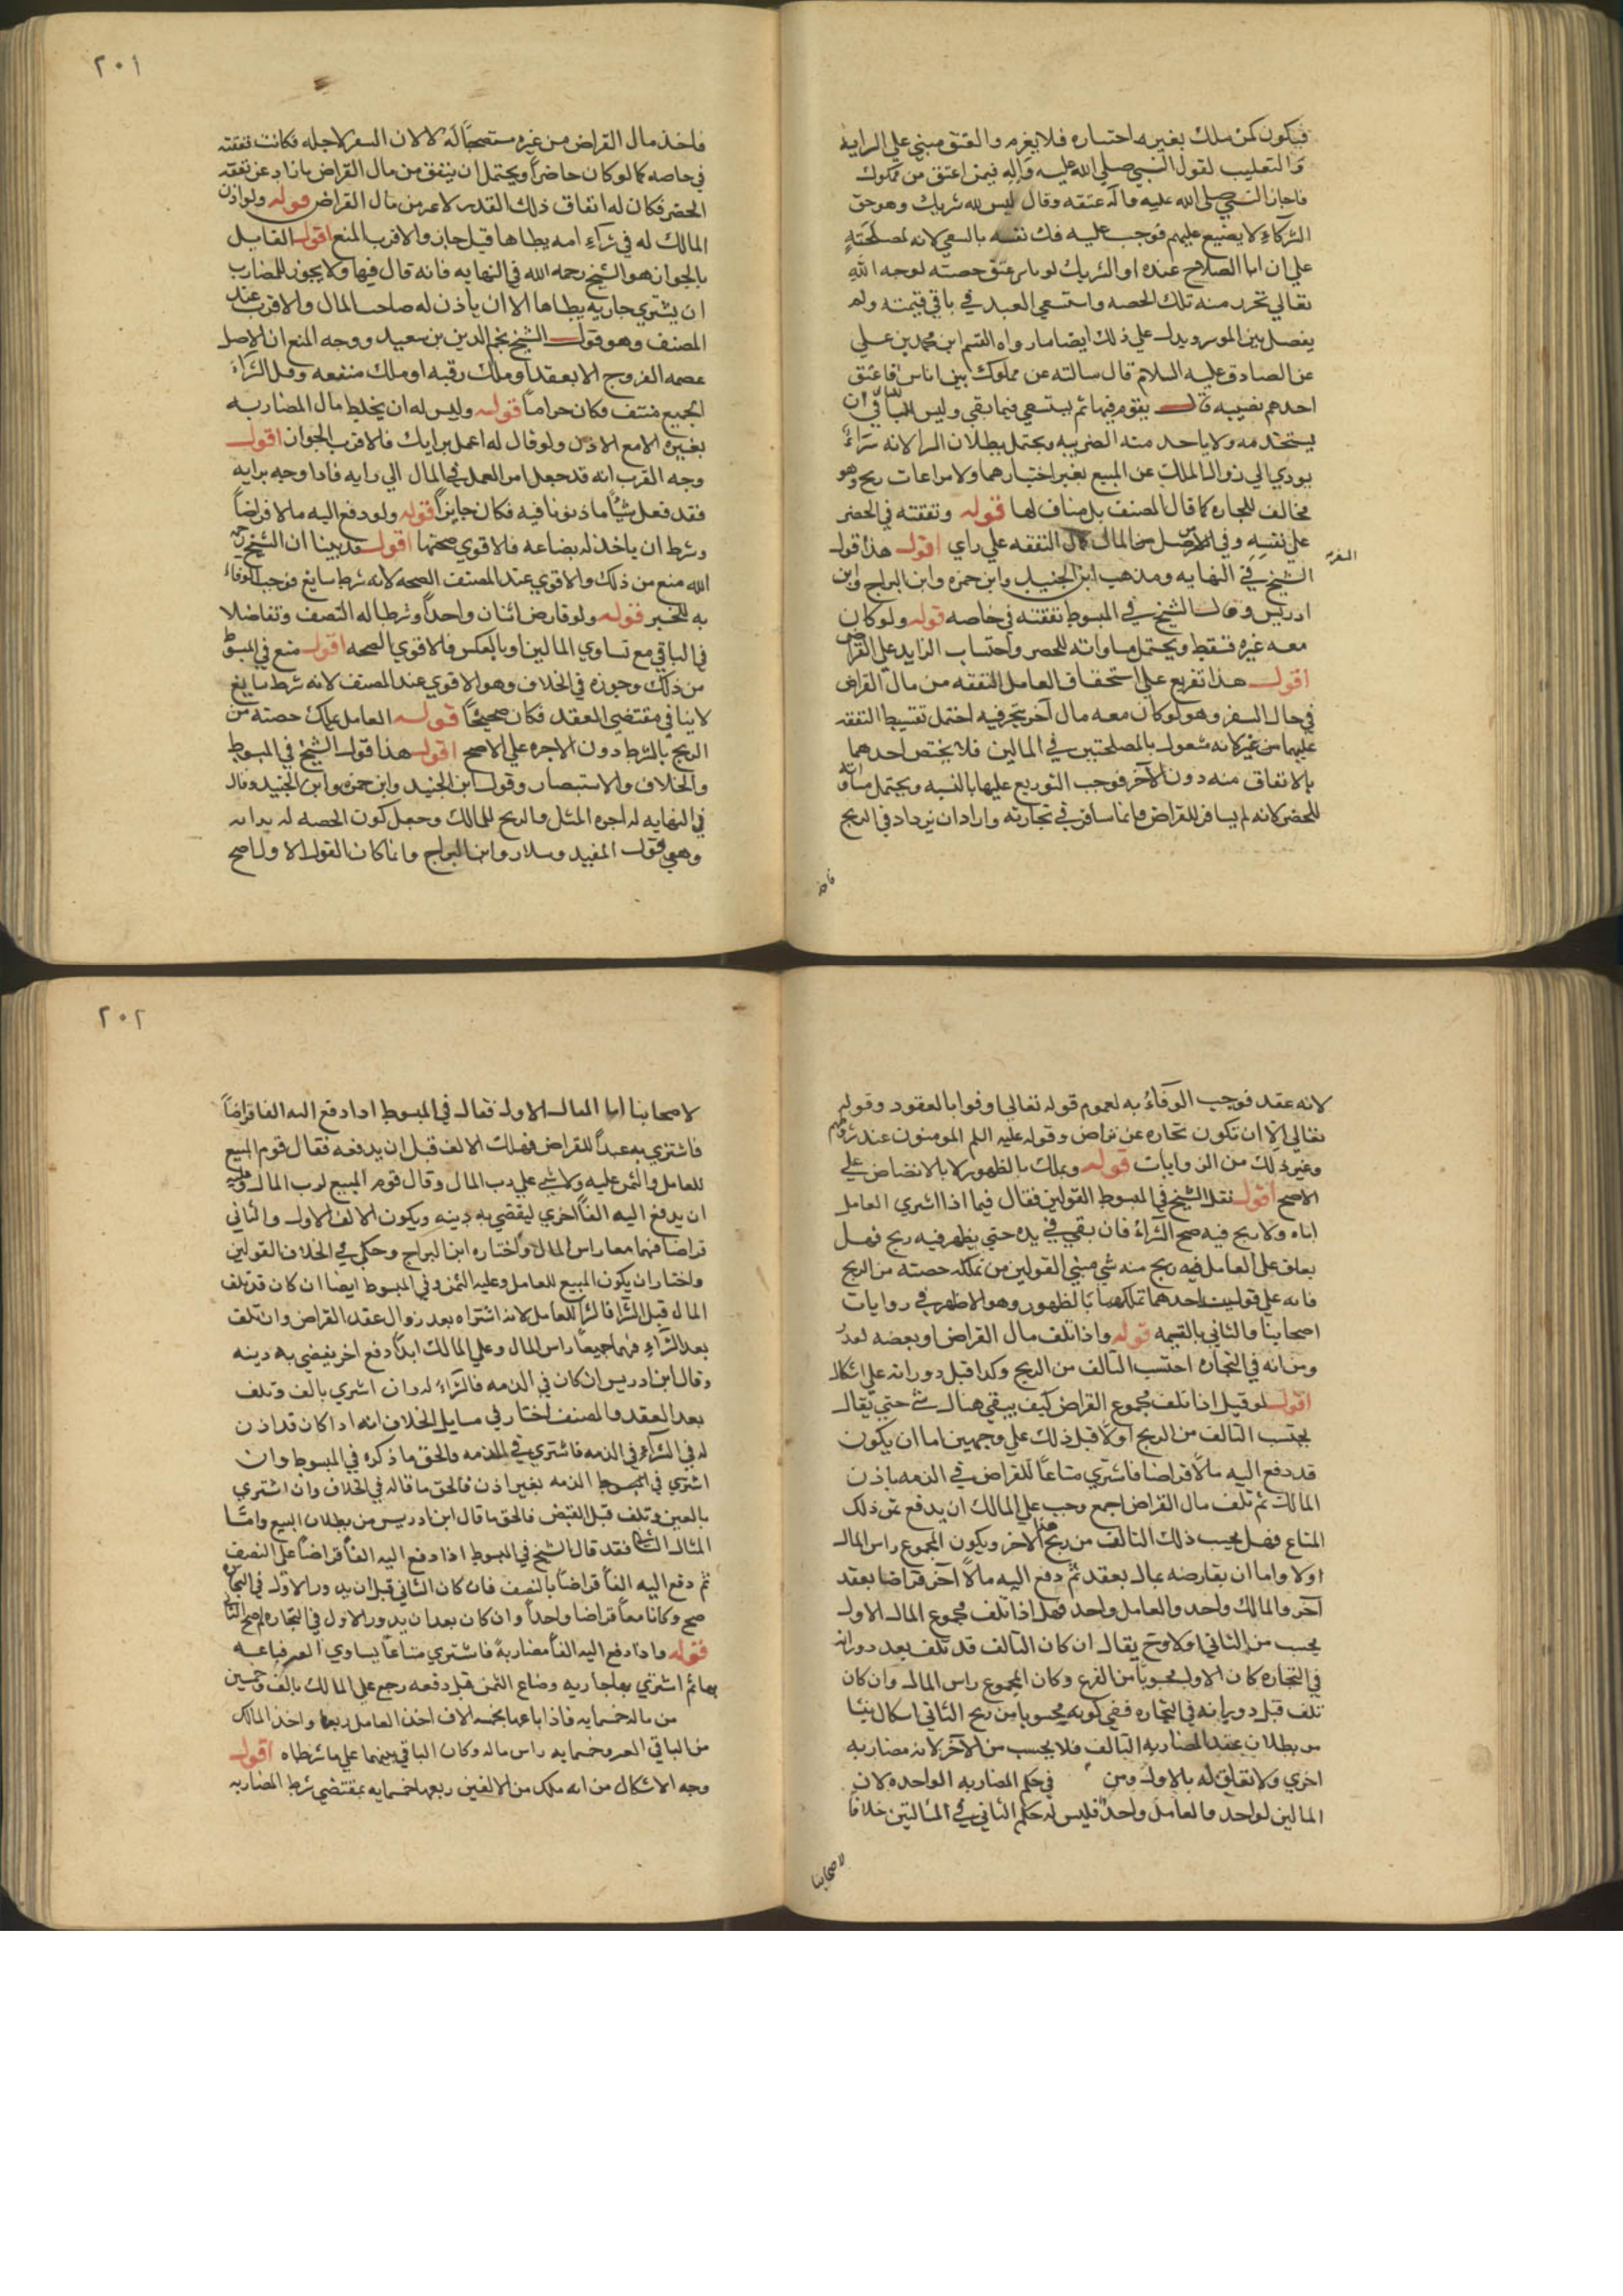 فيكون كمن ملك بغير اختياره فلا يغرم والعتق مبني علي السراية
والتغليب لقول النبي صلي الله عليه واله فيمن اعتق من مملوك
فاجاز النبي صلي الله عليه واله عتقه وقال ليس لله شريك وهو حق
الشركاء لا يضيع عليهم فوجب عليه فك نفسه بالسعي لانه لمصلحته
علي ان ابا الصلاح عنده او الشريك لو باشر عتق حصته لوجه الله
تعالي تحرر منه تلك الحصه واستسعي العبد في باقي قيمته ولم
يفصل بين الموسر ويدل علي ذلك ايضا ما رواه القسم ابن محمد بن علي
عن الصادق عليه السلام قال سالته عن مملوك بين اناس فاعتق
احدهم نصيبه قال يقوم فيها ثم يستسعي فيما بقي وليس للباقي ان
يستخدمه ولا ياخذ منه الضريبه ويحتمل بطلان الشرا لانه شراء
يودي الي زوال الملك عن المبيع بغير اختيارهما ولا مراعات ربح وهو
مخالف للتجاره كما قال المصنف بل مناف لها قوله ونفقته في الحضر
علي نفسه وفي السفر من اصل المال كمال النفقه علي راي اقول هذا قول
الشيخ في النهايه ومذهب ابن الجنيد وابن حمزه وابن البراج وابن
ادريس وقال الشيخ في المبسوط نفقته في خاصه قوله ولو كان
معه غيره قسط ويحتمل مساواته للحضر واحتساب الزايد علي القراض
اقول هذا تفريع علي استحقاق العامل النفقه من مال القراض
في حال السفر وهو لو كان معه مال آخر يتجر فيه احتمل تقسيط النفقه
عليهما من غير لانه مشغول بالمصلحتين في المالين فلا يختص احدهما
بالانفاق منه دون الآخر فوجب التوزيع عليها بالنسبه ويحتمل مساواته
للحضر لانه لم يسافر للقراض وانما سافر في تجارته واراد ان يزداد في الربح
فاخذ
فاخذ مال القراض من غيره مستصحبا له لا لان السفر لاجله فكانت نفقته
في خاصه كما لو كان حاضراً ويحتمل ان ينفق من مال القراض ما زاد عن نفقه
الحضر فكان له انفاق ذلك القدر لا غير من مال القراض قوله ولو اذن
المالك له في شراء امه يطاها قيل جاز والاقرب المنع اقول القايل
بالجواز هو الشيخ رحمه الله في النهايه فانه قال فيها ولا يجوز للمضارب
ان يشتري جاريه يطاها الا ان ياذن له صاحب المال والاقرب عند
المصنف وهو قول الشيخ نجم الدين بن سعيد ووجه المنع ان الاصل
عصمه الفروج الا بعقد او ملك رقبه او ملك منفعه وقبل الشراء
الجميع منتف فكان حراماً قوله وليس له ان يخلط مال المضاربه
بغيره الا مع الاذن ولو قال له اعمل برايك فالاقرب الجواز اقول
وجه القرب انه قد جعل امر العمل في المال الي رايه فاذا وجه برايه
فقد فعل شيئاً ماذونا فيه فكان جايزاً قوله ولو دفع اليه مالا قراضاً
وشرط ان ياخذ له بضاعه فالاقوي صحتها اقول قد بينا ان الشيخ رحمه
الله منع من ذلك والاقوي عند المصنف الصحه لانه شرط سايغ فوجب الوفاء
به للخبر قوله ولو قارض اثنان واحداً وشرطا له النصف وتفاضلا
في الباقي مع تساوي المالين او بالعكس فالاقوي الصحه اقول منع في المبسوط
من ذلك وجوزه في الخلاف وهو الاقوي عند المصنف لانه شرط سايغ
لا ينافي مقتضي العقد فكان صحيحًا قوله العامل يملك حصته من
الربح بالشرط دون الاجره علي الاصح اقول هذا قول الشيخ في المبسوط
والخلاف والاستبصار وقول ابن الجنيد وابن حمزه وابن الجنيد وقال
في النهايه له اجره المثل والربح للمالك وجعل كون الحصه له روايه
وهي قول المفيد وسلار وابن البراج وانما كان القول الاول اصح
٢٠١
لانه عقد فوجب الوفاءُ به لعموم قوله تعالي اوفوا بالعقود وقوله
تعالي الا ان تكون تجاره عن تراض وقوله عليه السلم المومنون عند شروطهم
وغير ذلك من الروايات قوله ويملك بالظهور لا بالانضاض علي
الاصح اقول نقل الشيخ في المبسوط القولين فقال فيما اذا اشتري العامل
اباه ولا ربح فيه صح الشراءُ فان بقي في يده حتي يظهر فيه ربح فهل
يعتق علي العامل فيه ربح منه شي مبني القولين من تملكه حصته من الربح
فانه علي قولين احدهما تملكها بالظهور وهو الاظهر في روايات
اصحابنا والثاني بالقسمه قوله واذا تلف مال القراض او بعضه بعد
دورانه في التجاره احتسب التالف من الربح وكذا قبل دورانه علي اشكال
اقول لو قيل اذا تلف مجموع القراض كيف يبقي هناك شي حتي يقال
يحتسب التالف من الربح اولا قيل ذلك علي وجهين اما ان يكون
قد دفع اليه مالًا قراضا فاشتري متاعًا للقراض في الذمه باذن
المالك ثم تلف مال القراض اجمع وجب علي المالك ان يدفع ثمن ذلك
المتاع فهل يحسب ذلك التالف من ربح هذا الاخر ويكون المجموع راس المال
اولا واما ان يقارضه بمال بعقد ثم دفع اليه مالًا آخر قراضا بعقد
آخر والمالك واحد والعامل واحد فهل اذا تلف مجموع المال الاول
يحسب من الثاني اولا وح يقال ان كان التالف قد تلف بعد دورانه
في التجاره كان الاول محسوباً من الفرع وكان المجموع راس المال وان كان
تلف قبل دورانه في التجاره ففي كونه محسوبا من ربح الثاني اشكال ينشا
من بطلان عقد المضاربه التالف فلا يحسب من الآخر لانه مضاربه
اخري ولا تعلق له بالاول ومن في حكم المضاربه الواحده لان
المالين لواحد والعامل واحد فليس له حكم الثاني في المسالتين خلافًا
لاصحابنا
لاصحابنا اما المال الاول فقال في المبسوط اذا دفع اليه الفا قراضاً
فاشتري به عبداً للقراض فهلك الالف قبل ان يدفعه فقال قوم المبيع
للعامل والثمن عليه ولا شي علي رب المال وقال قوم المبيع لرب المال وعليه
ان يدفع اليه الفاً اخري ليقضي به دينه ويكون الالف الاول والثاني
قراضا فهما معا راس المال واختاره ابن البراج وحكي في الخلاف القولين
واختار ان يكون المبيع للعامل وعليه الثمن وفي المبسوط ايضا ان كان قد تلف
المال قبل الشرا فالشرا للعامل لانه اشتراه بعد زوال عقد القراض وان تلف
بعد الشراء فهما جميعا راس المال وعلي المالك ابداً دفع اخر يقضي به دينه
وقال ابن ادريس ان كان في الذمه فالشراءُ له وان اشتري بالف وتلف
بعد العقد والمصنف اختار في مسايل الخلاف انه اذا كان قد اذن
له في الشراء في الذمه فاشتري في الذمه والحق ما ذكره في المبسوط وان
اشتري في الذمه بغير اذن فالحق ما قاله في الخلاف وان اشتري
بالعين وتلف قبل القبض فالحق ما قال ابن ادريس من بطلان البيع واما
المثال الثاني فقد قال الشيخ في المبسوط اذا دفع اليه الفاً قراضاً علي النصف
ثم دفع اليه الفاً قراضاً بالنصف فان كان الثاني قبل ان يدور الاول في التجاره
صح وكانا معاً قراضا واحداً وان كان بعد ان يدور الاول في التجاره لم يصح الثاني
قوله واذا دفع اليه الفاً مضاربة فاشتري متاعاً يساوي الفين فباعه
بهما ثم اشتري بها جاريه وضاع الثمن قبل دفعه رجع علي المالك بالف وخمسين
من ماله خمسمايه فاذا باعها بخمسه الاف اخذ العامل ربعها واخذ المالك
من الباقي الفين وخمسمايه راس ماله وكان الباقي بينهما علي ما شرطاه اقول
وجه الاشكال من انه ملك من الالفين ربعها خمسمايه بمقتضي شرط المضاربه
٢٠٢